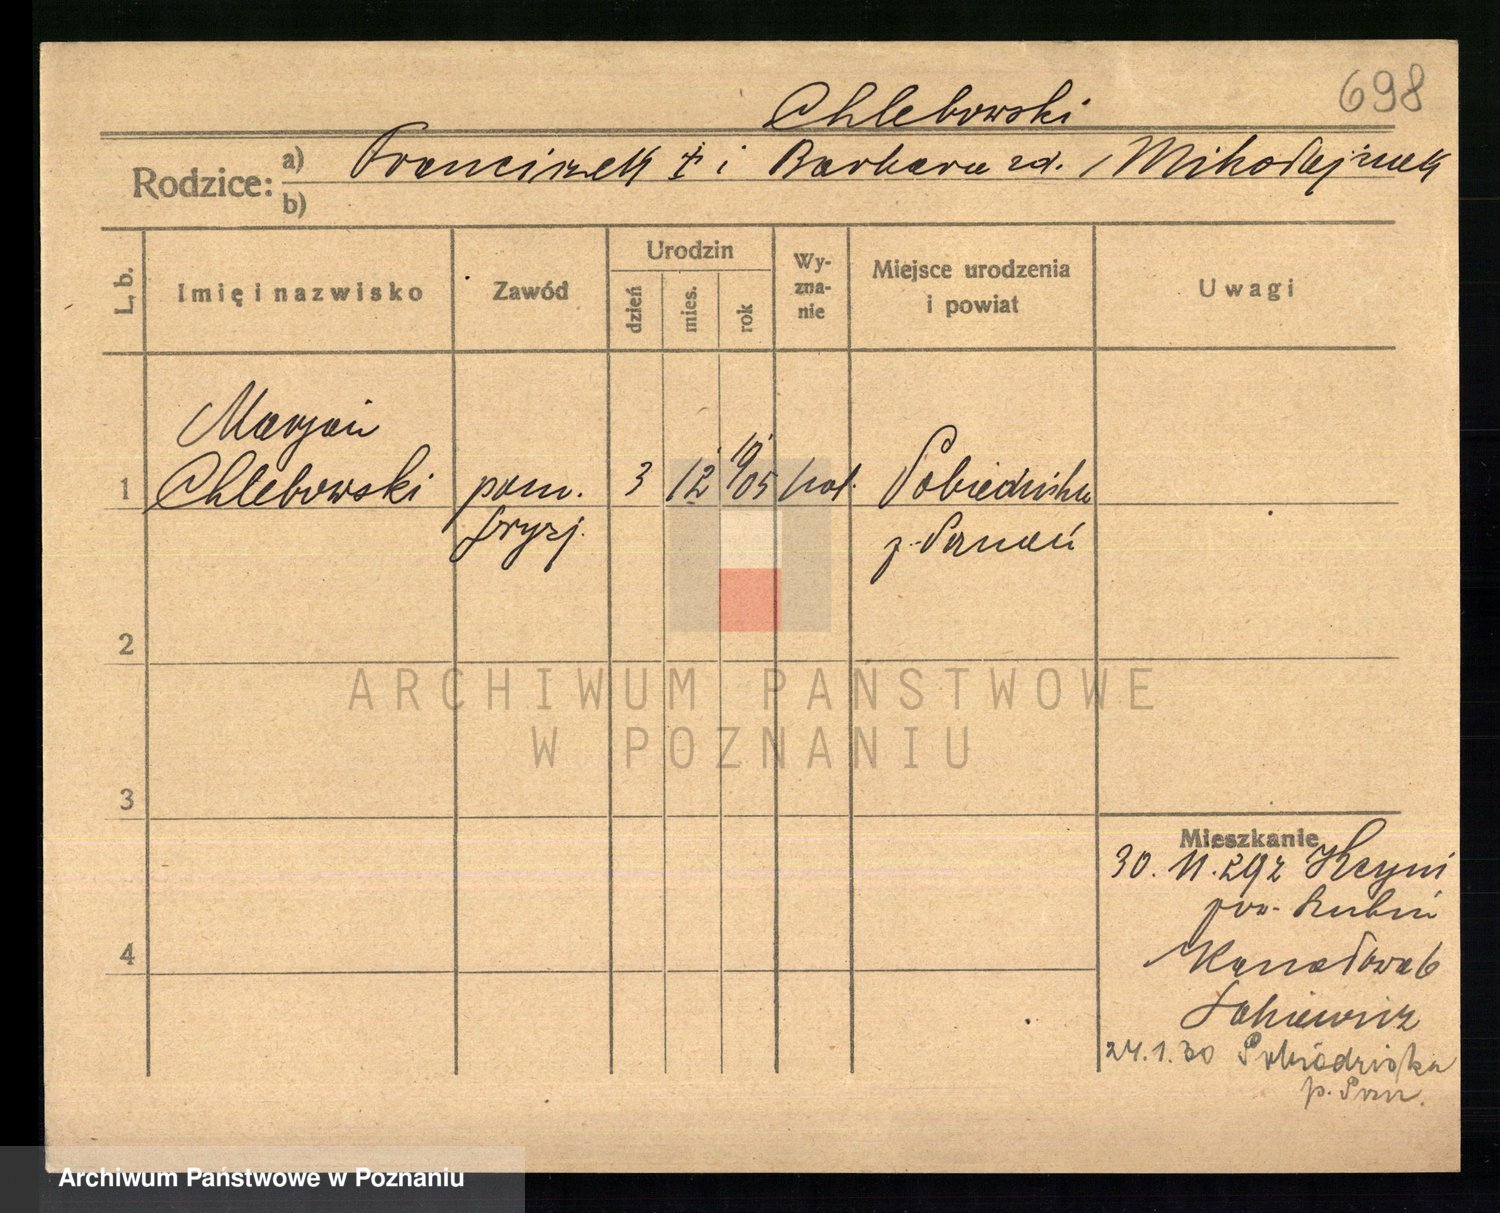 698
Chlebowski
Rodzice: a) Franciszek † i Barbara zd. Mikołajczak
b)
L. b.
Imię i nazwisko
Zawód
Urodzin
dzień
mies.
rok
Wy-
zna-
nie
Miejsce urodzenia
i powiat
Uwagi
Marjan
1 Chlebowski pom. 3 12 1905 kat. Pobiedziska
fryzj. p. Poznań
2
3
4
Mieszkanie
30. 11. 29 z Kcyni
pow. Szubin
Kanałowa 6
24.1.30 Pobiedziska
p. Pozn.
ARCHIWUM PAŃSTWOWE
W POZNANIU
Archiwum Państwowe w Poznaniu